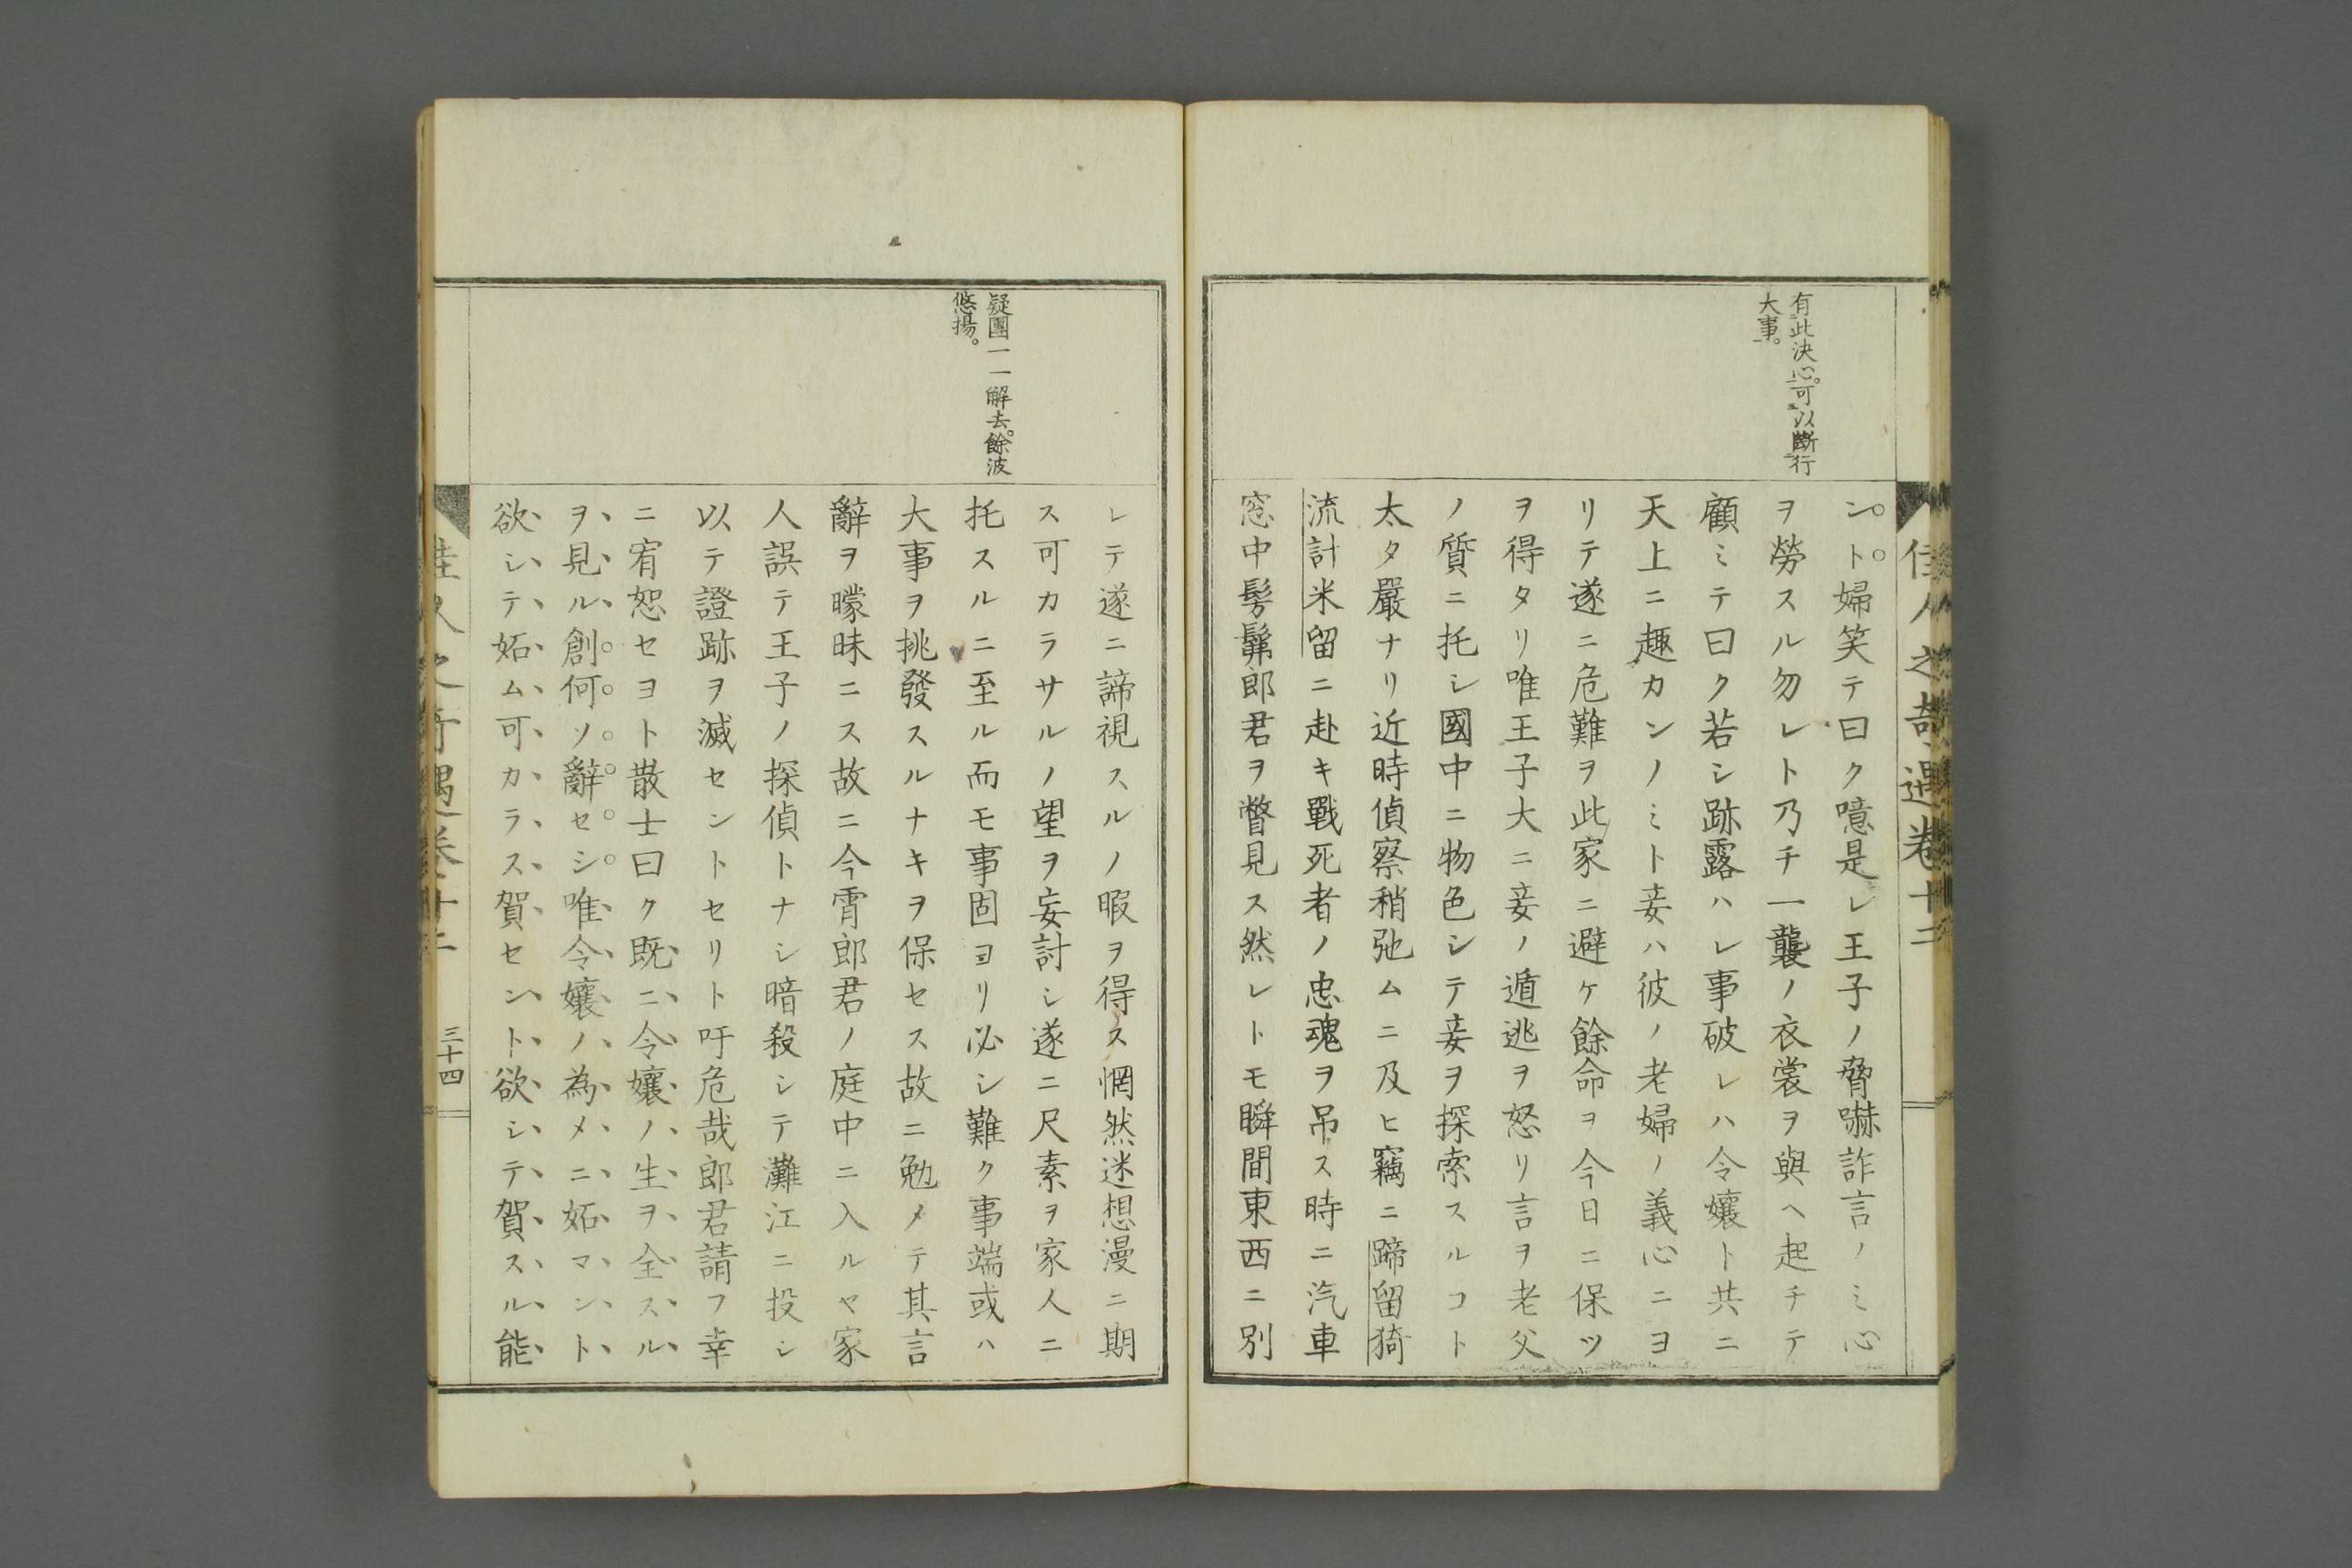 佳人之奇遇卷十二
有此決心。可以斷行
大事。
ン。ト。婦笑テ曰ク噫是レ王子ノ脅嚇詐言ノミ心
ヲ勞スル勿レト乃チ一襲ノ衣裳ヲ與ヘ起チテ
顧ミテ曰ク若シ跡露ハレ事破レハ令孃ト共ニ
天上ニ趣カンノミト妾ハ彼ノ老婦ノ義心ニヨ
リテ遂ニ危難ヲ此家ニ避ケ餘命ヲ今日ニ保ツ
ヲ得タリ唯王子大ニ妾ノ遁逃ヲ怒リ言ヲ老父
ノ質ニ托シ國中ニ物色シテ妾ヲ探索スルコト
太タ嚴ナリ近時偵察稍弛ムニ及ヒ竊ニ蹄留猗
流計米留ニ赴キ戰死者ノ忠魂ヲ吊ス時ニ汽車
窓中髣髴郎君ヲ瞥見ス然レトモ瞬間東西ニ別
疑團一一解去。餘波
悠揚。
レテ遂ニ諦視スルノ暇ヲ得ス惘然迷想漫ニ期
ス可カラサルノ望ヲ妄討シ遂ニ尺素ヲ家人ニ
托スルニ至ル而モ事固ヨリ必シ難ク事端或ハ
大事ヲ挑發スルナキヲ保セス故ニ勉メテ其言
辭ヲ曚昧ニス故ニ今霄郎君ノ庭中ニ入ルヤ家
人誤テ王子ノ探偵トナシ暗殺シテ灘江ニ投シ
以テ證跡ヲ滅セントセリト吁危哉郎君請フ幸
ニ宥恕セヨト散士曰ク既ニ令孃ノ生ヲ全スル
ヲ見ル創何ソ辭セシ唯令孃ノ為メニ妬マント
欲シテ妬ム可カラス賀セント欲シテ賀スル能
佳人之奇遇卷十二
三十四